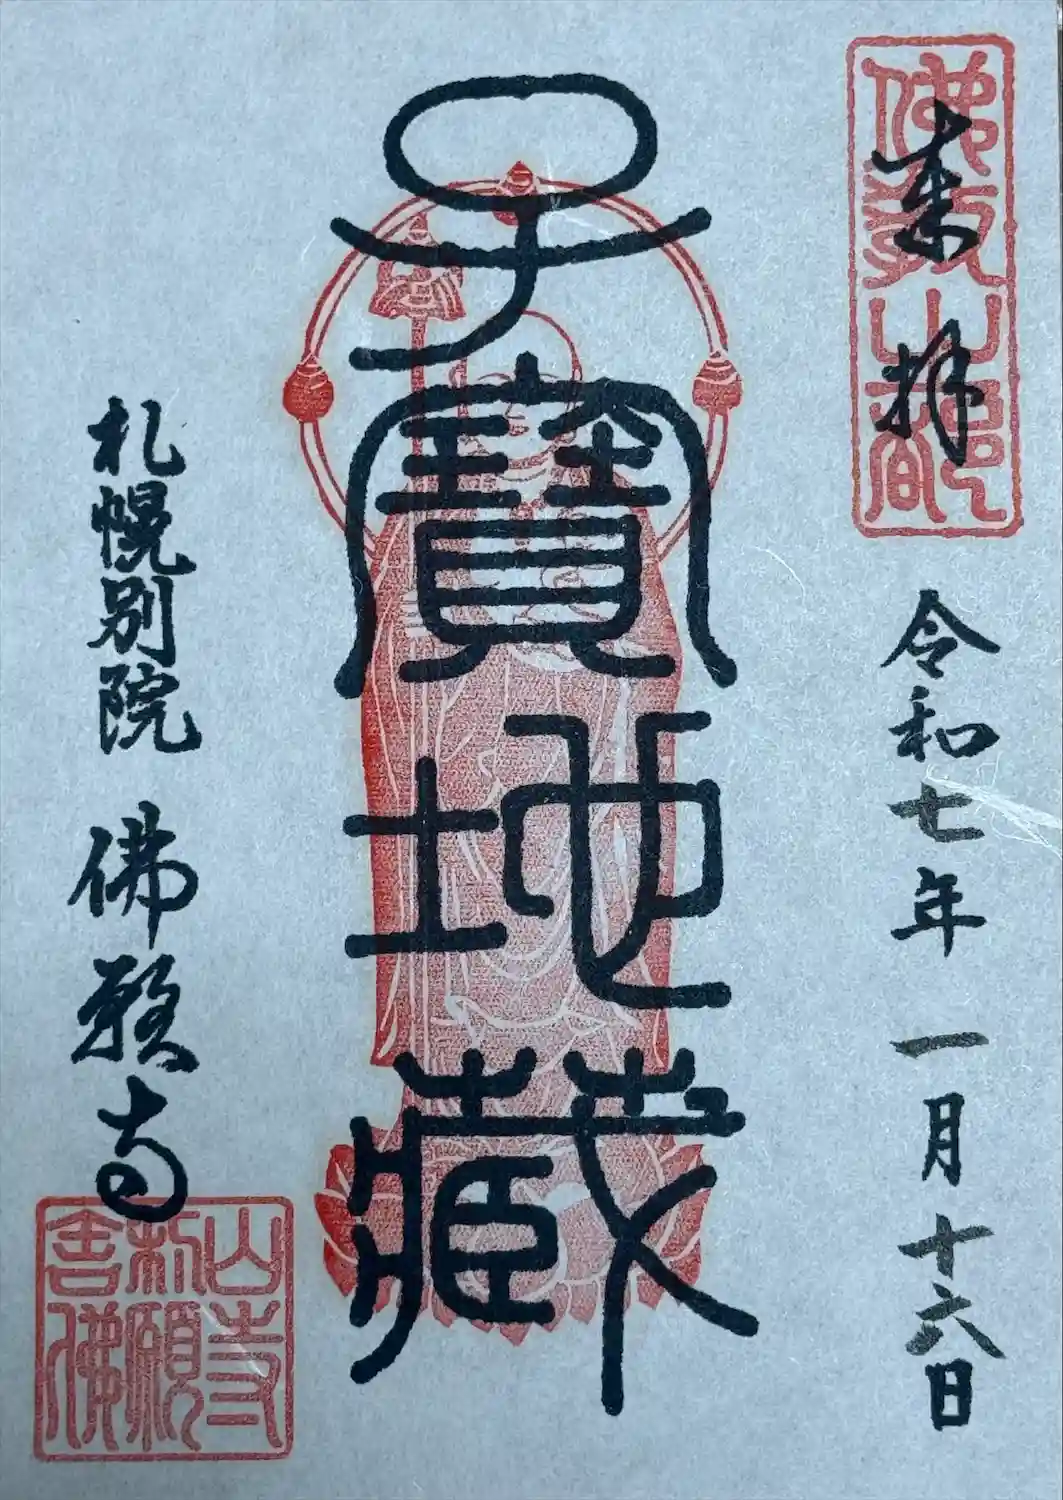 来拝
令和七年一月十六日
子寶地藏
札幌別院 佛願寺